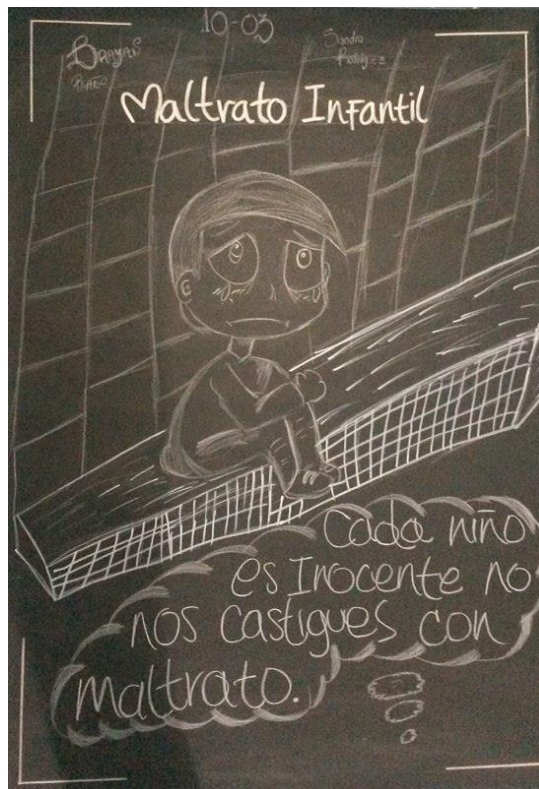 10-03
BRAYAN
Sandra
Rodriguez
Maltrato Infantil
Cada niño
es Inocente no
nos castigues con
maltrato.